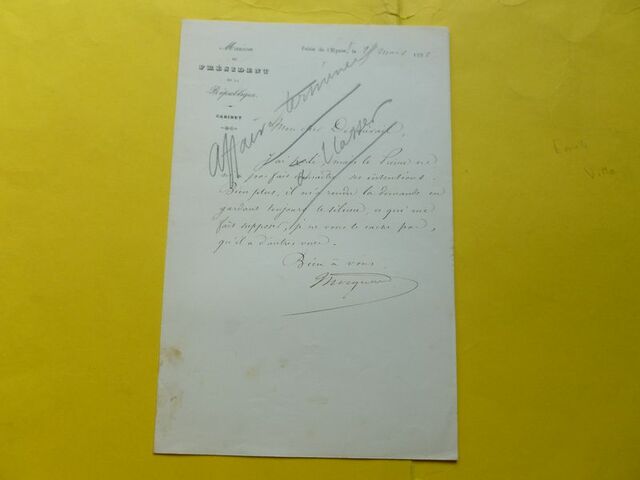 MAISON
DU
PRÉSIDENT
DE LA
République.
CABINET
Palais de l'Élysée, le mars 185
affaire terminée
à classer
Mon cher
J'ai parlé mais le Prince ne
pas fait connaître ses intentions.
Bien plus, il m'a rendu la demande en
gardant toujours le silence, ce qui me
fait supposer, je ne vous le cache pas,
qu'il a d'autres vues.
Bien à vous